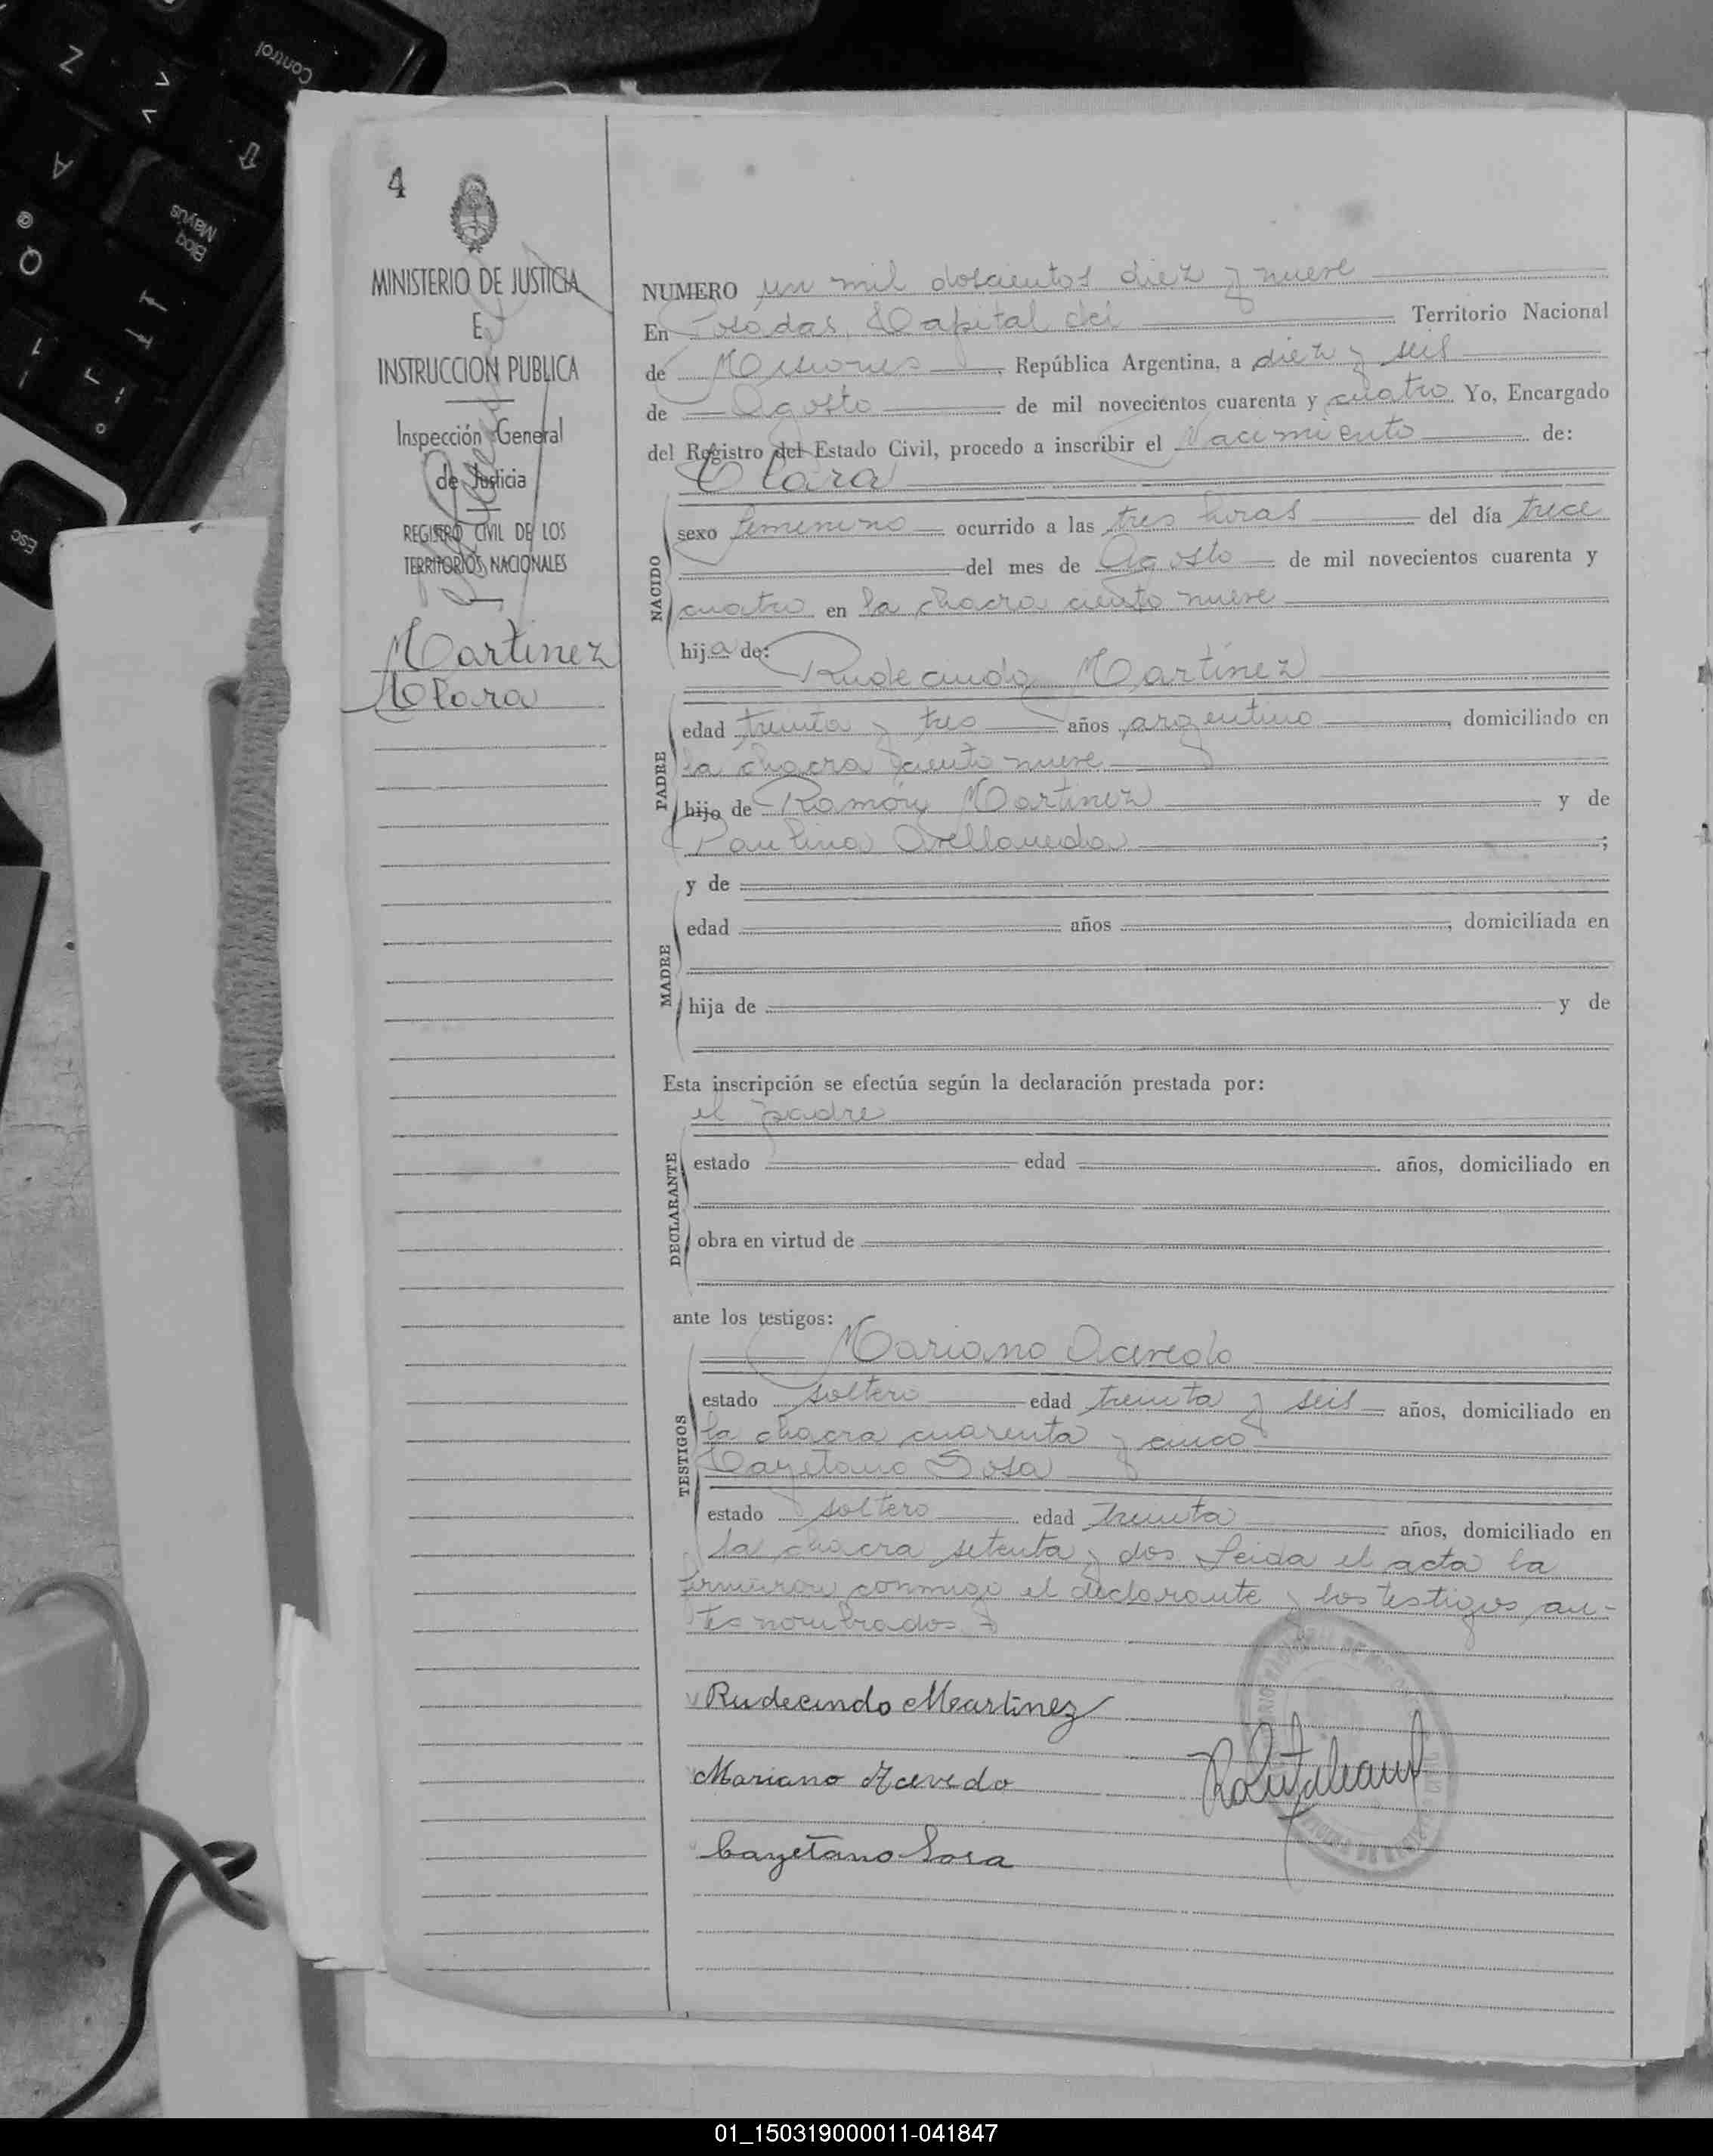 4
MINISTERIO DE JUSTICIA
E
INSTRUCCION PUBLICA
Inspección General
de Justicia
REGISTRO CIVIL DE LOS
TERRITORIOS NACIONALES
Martinez
Clara
NUMERO un mil doscientos diez y nueve
En Posadas Capital del Territorio Nacional
de Misiones, República Argentina, a diez y seis
de Agosto de mil novecientos cuarenta y cuatro Yo, Encargado
del Registro del Estado Civil, procedo a inscribir el Nacimiento de:
Clara
NACIDO
sexo femenino ocurrido a las tres horas del día trece
del mes de Agosto de mil novecientos cuarenta y
cuatro en la chacra ciento nueve
hija de:
Rudecindo Martinez
PADRE
edad treinta y tres años argentino, domiciliado en
la chacra ciento nueve
hijo de Ramón Martinez y de
Paulina Avellaneda;
y de
MADRE
edad años, domiciliada en
hija de y de
Esta inscripción se efectúa según la declaración prestada por:
el padre
DECLARANTE
estado edad años, domiciliado en
obra en virtud de
ante los testigos:
Mariano Acevedo
TESTIGOS
estado soltero edad treinta y seis años, domiciliado en
la chacra cuarenta y cinco
Cayetano Sosa
estado soltero edad treinta años, domiciliado en
la chacra setenta y dos Leida el acta la
firmaron conmigo el declarante y los testigos an-
tes nombrados
Rudecindo Martinez
Mariano Acevedo
Cayetano Sosa
Control
Z
A
Bloq
Mayús
@
Q
Esc
01_150319000011-041847